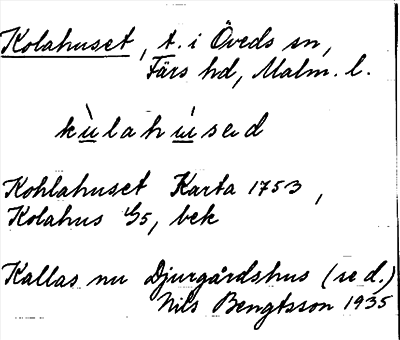 Kolahuset, t. i Öveds sn,
Färs hd, Malm. l.
kùlahùsəd
Kohlahuset Karta 1753,
Kolahus G5, bek
Kallas nu Djurgårdshus (se d.)
Nils Bengtsson 1935